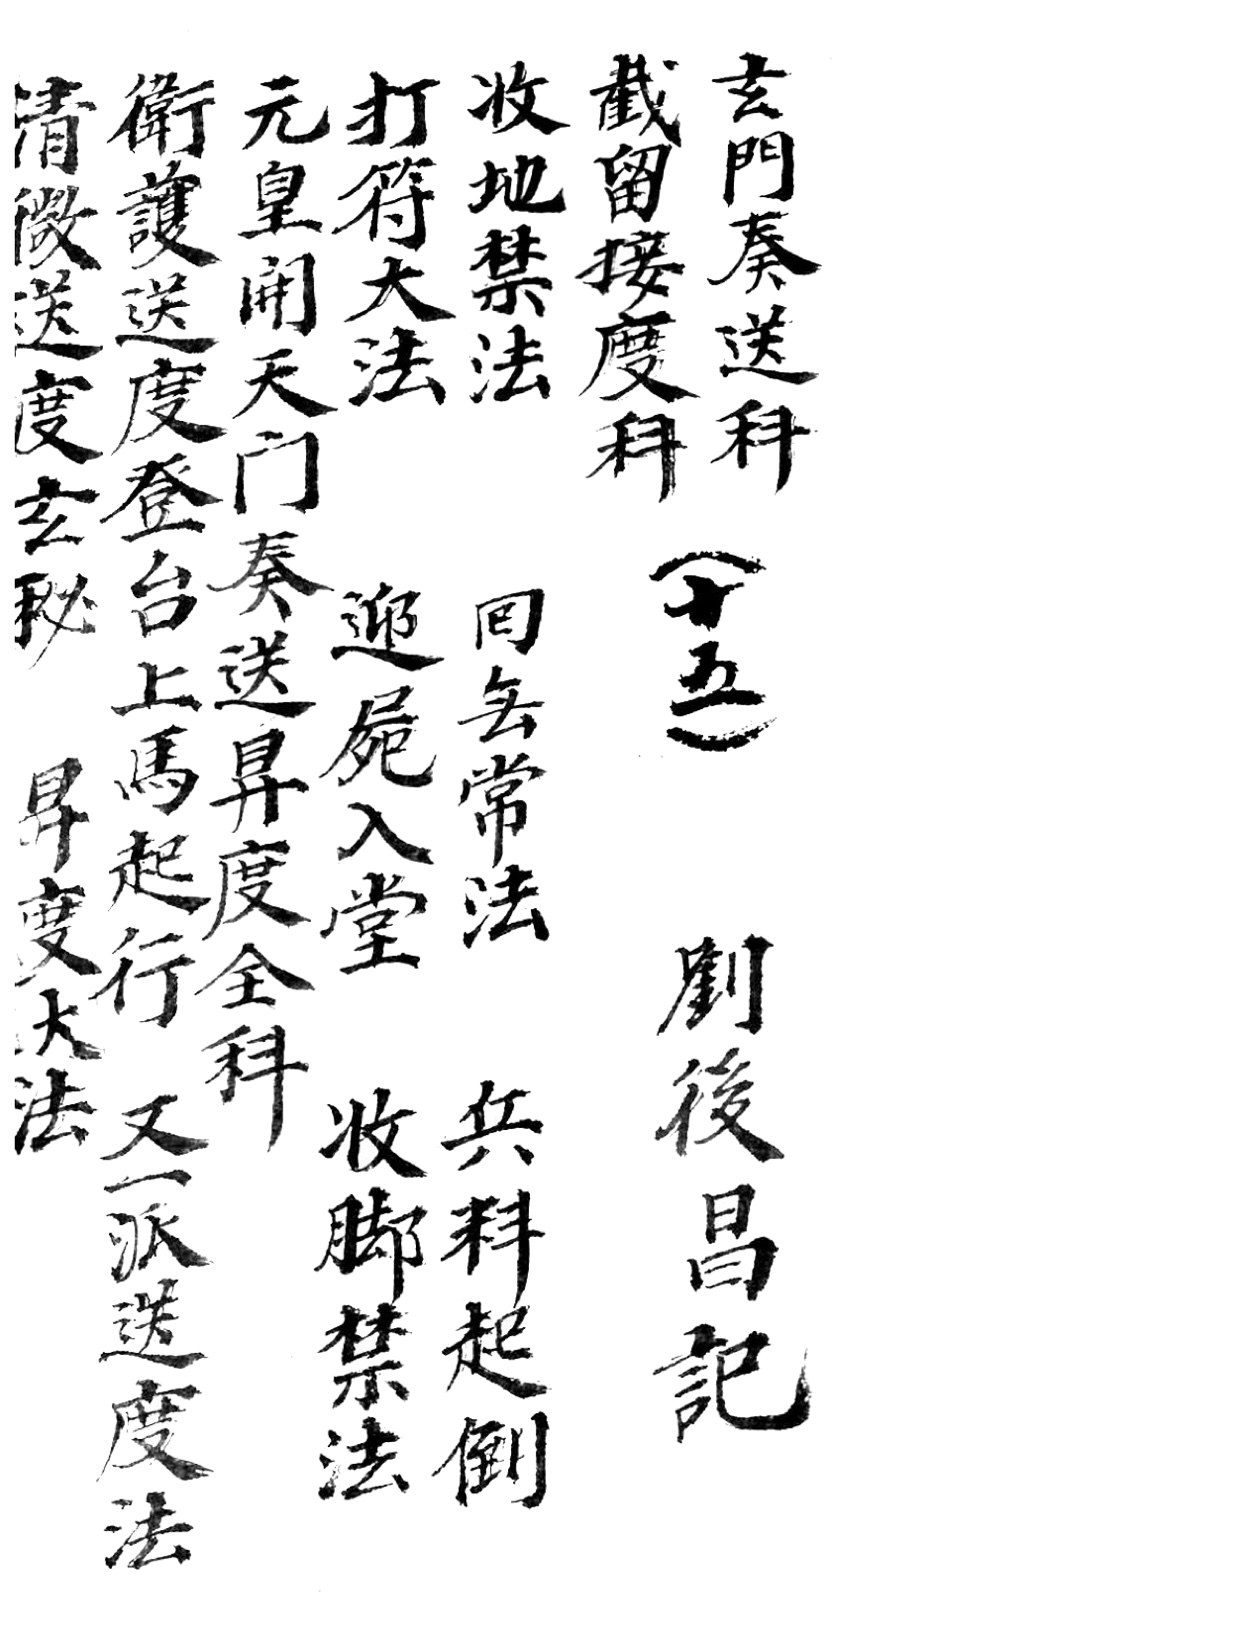 玄門奏送科
截留接度科
（十五）
劉後昌記
收地禁法 罔無常法 兵料起倒
打符大法 迎屍入堂 收脚禁法
元皇開天门奏送昇度全科
衛護送度登台上馬起行 又一派送度法
清微送度玄秘 昇度大法